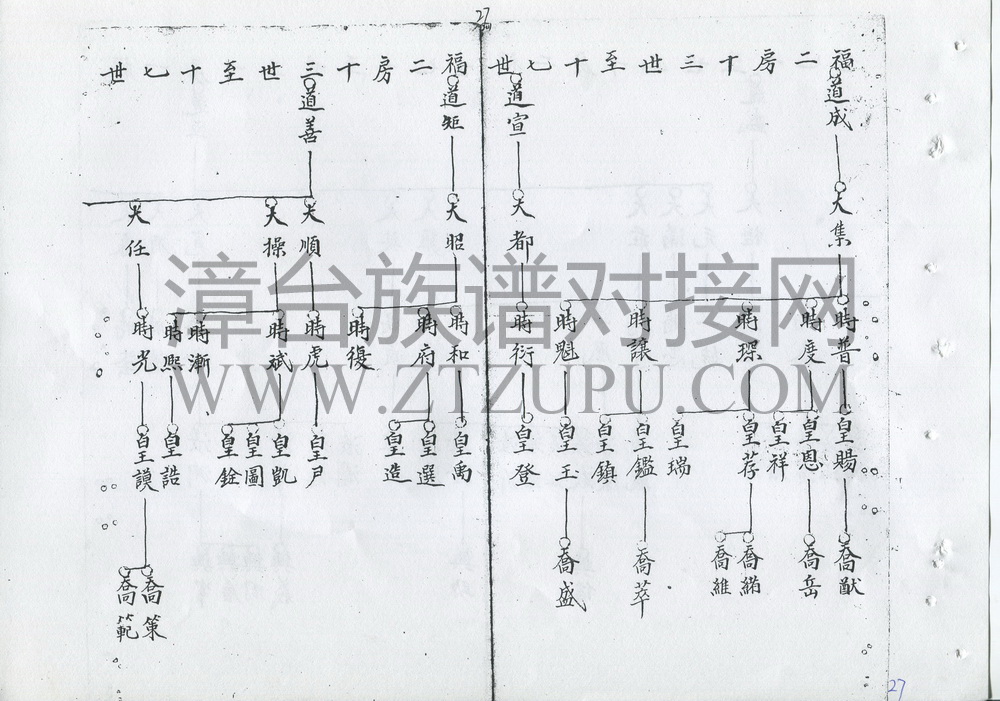 27
福二房十三世至十七世
道成
道宣
大集
大都
時普
時度
時琛
時讓
時魁
時衍
皇賜
皇恩
皇祥
皇荐
皇瑞
皇鑑
皇鎮
皇王
皇登
喬猷
喬岳
喬緒
喬維
喬萃
喬盛
福二房十三世至十七世
道矩
道善
大昭
大順
大操
大任
時和
時府
時復
時虎
時斌
時漸
時熙
時光
皇禹
皇選
皇造
皇尸
皇凱
皇圖
皇銓
皇誥
皇謨
喬策
喬範
漳台族谱对接网
WWW.ZTZUPU.COM
27